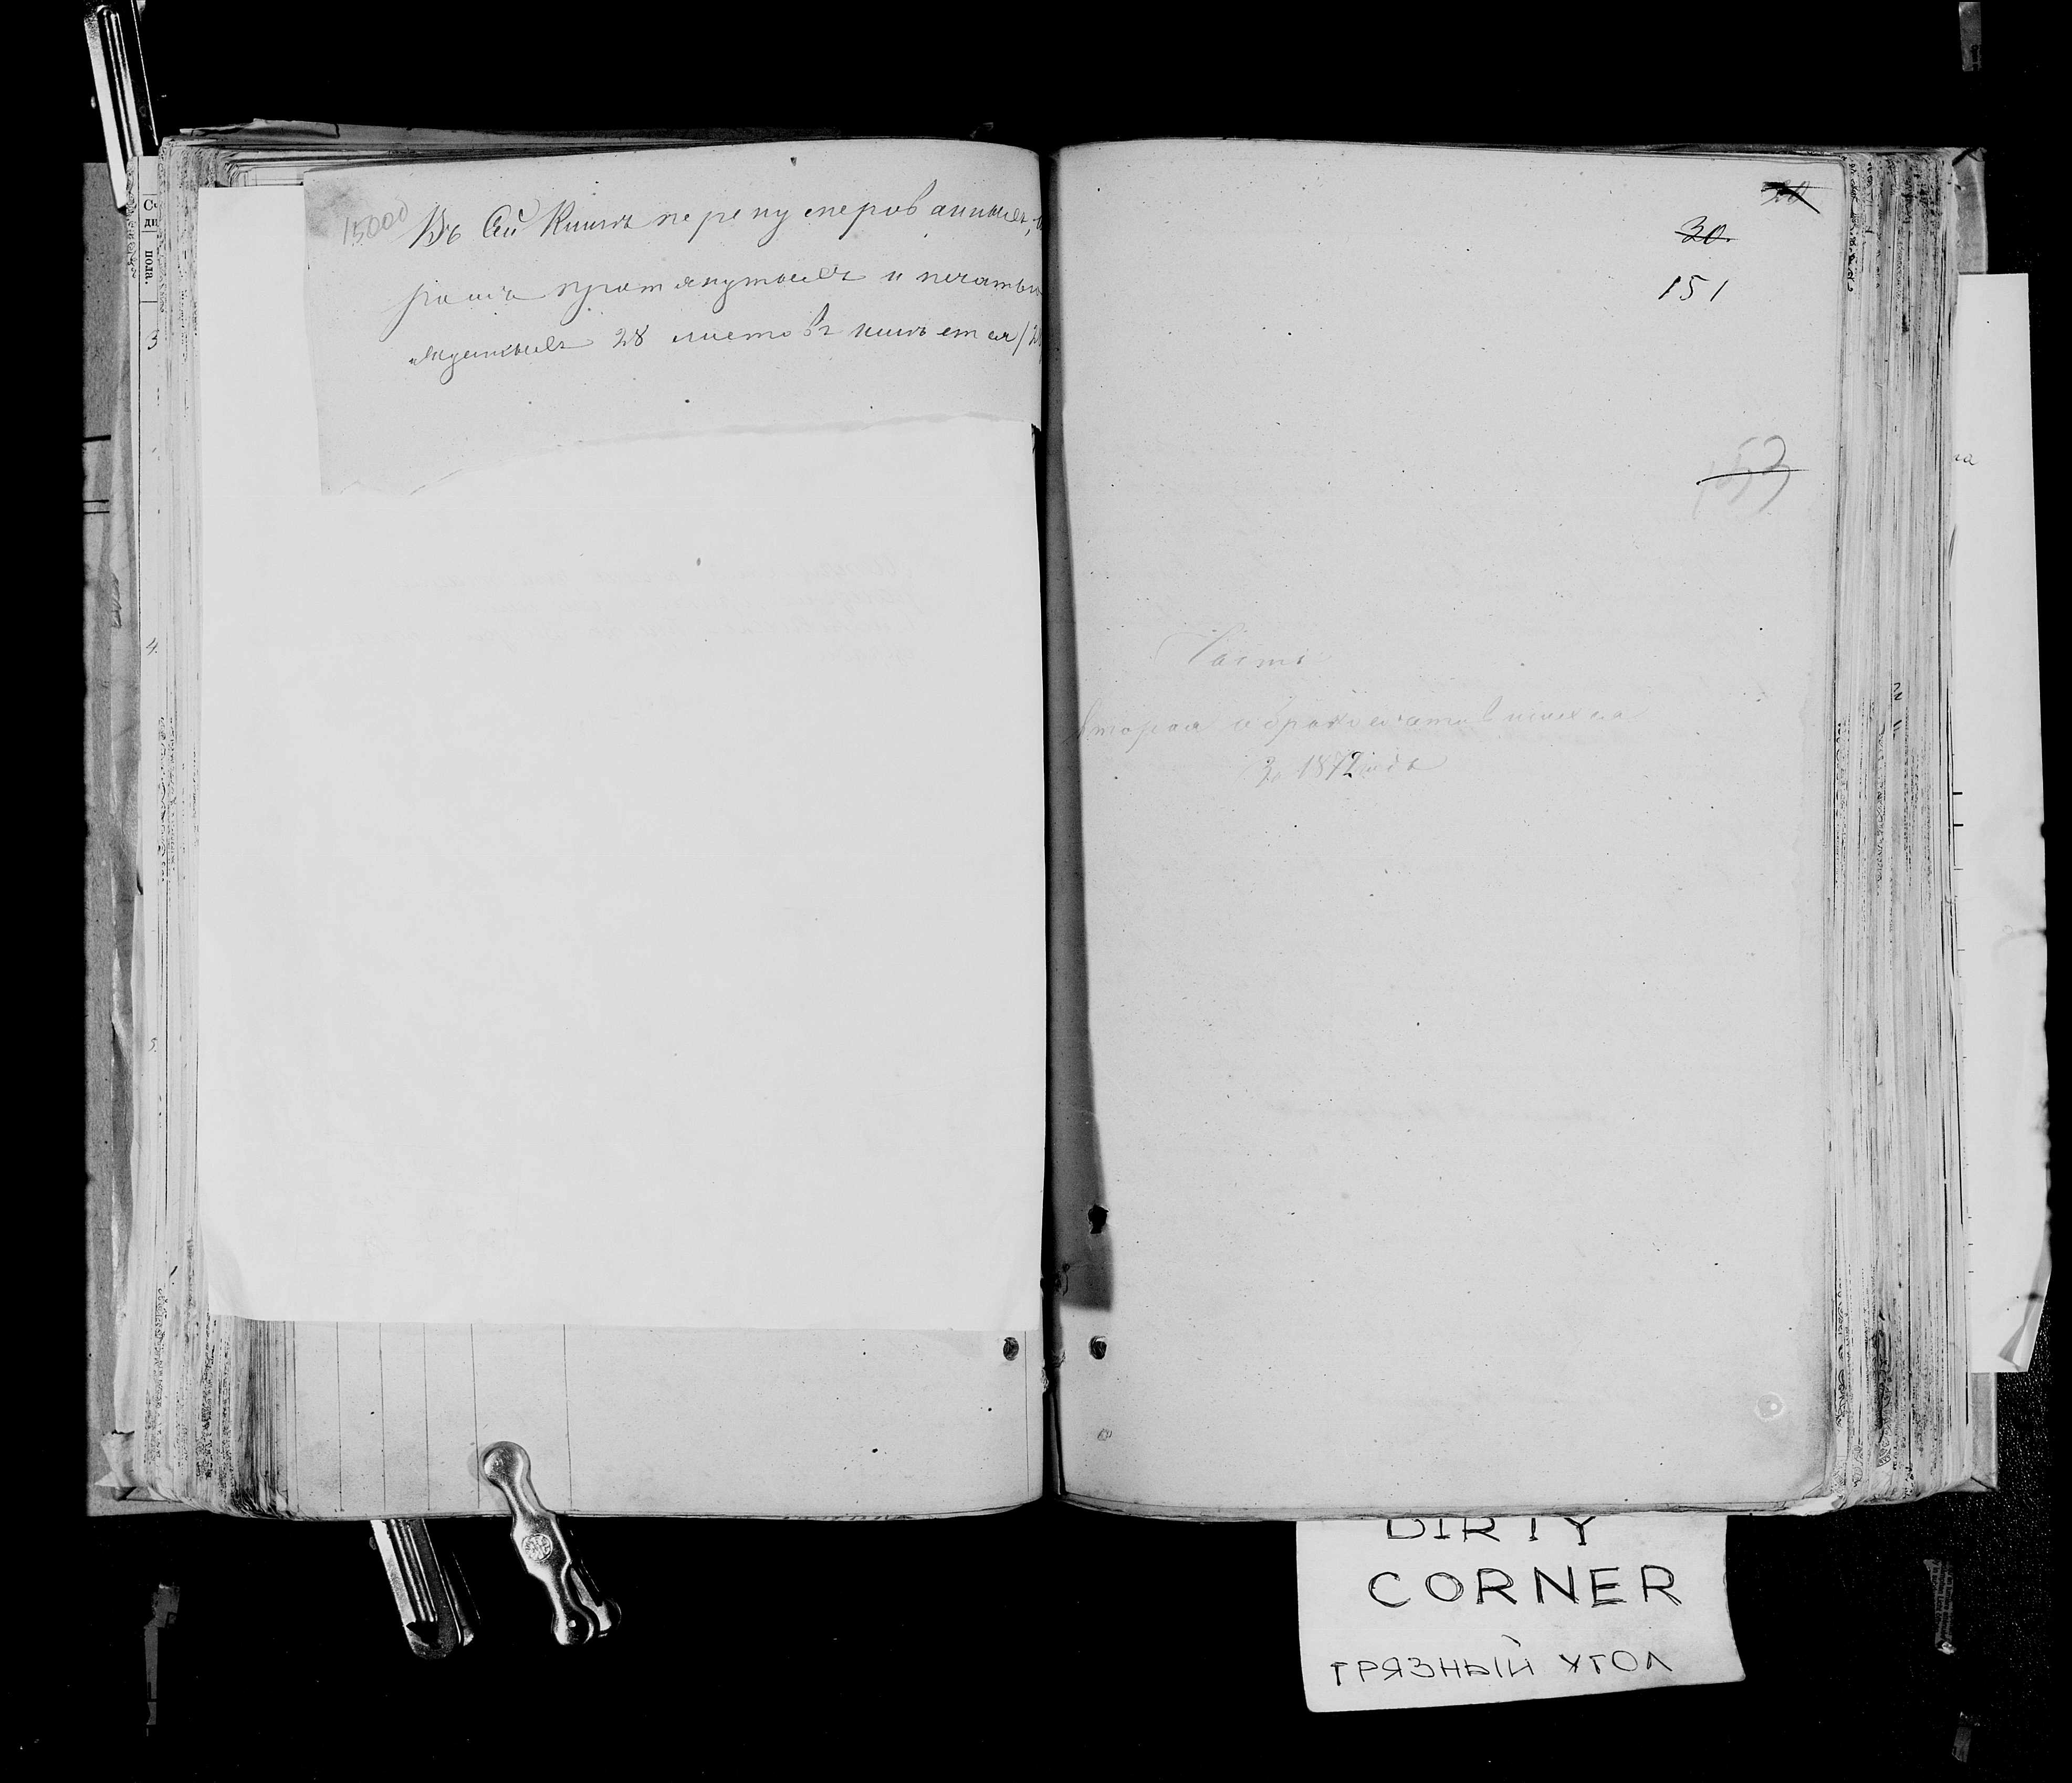 15000
Въ Сей Книгѣ перенумерованныхъ,
протянутыхъ и печатью
28 листовъ имѣется
20
30.
151
153
Часть
вторая о бракосочетавшихся
За 1872 годъ
3
4.
5.
DIRTY
CORNER
ГРЯЗНЫЙ УГОЛ